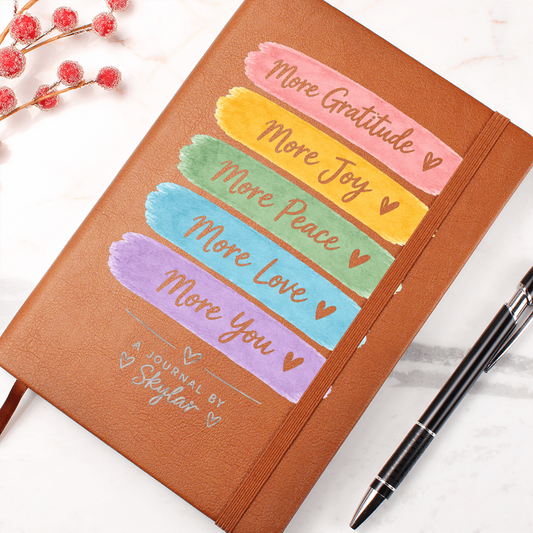 More Gratitude
More Joy
More Peace
More Love
More You
A JOURNAL BY
Skylar